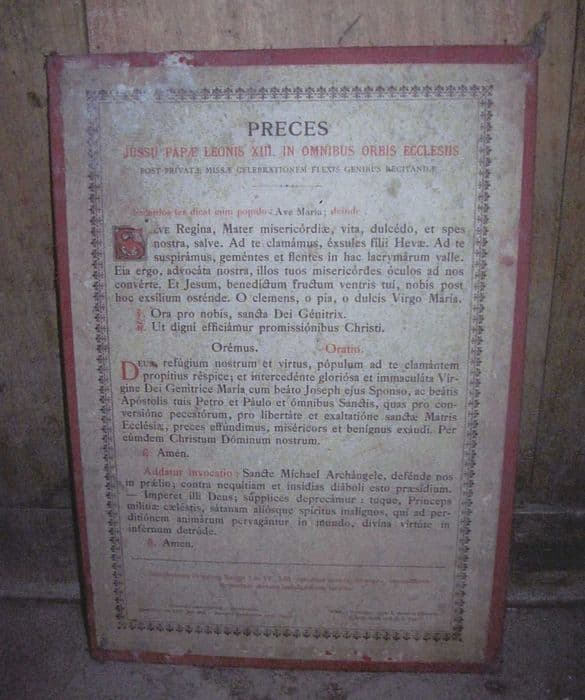 PRECES
JUSSU PAPÆ LEONIS XIII. IN OMNIBUS ORBIS ECCLESIIS
POST PRIVATÆ MISSÆ CELEBRATIONEM FLEXIS GENIBUS RECITANDÆ
Sacerdos ter dicat cum populo: Ave Maria; deinde
SALVE Regina, Mater misericórdiæ, vita, dulcédo, et spes
nostra, salve. Ad te clamámus, éxsules filii Hevæ. Ad te
suspirámus, geméntes et flentes in hac lacrymárum valle.
Eia ergo, advocáta nostra, illos tuos misericórdes óculos ad nos
convérte. Et Jesum, benedíctum fructum ventris tui, nobis post
hoc exsílium osténde. O clemens, o pia, o dulcis Virgo María.
℣. Ora pro nobis, sancta Dei Génitrix.
℟. Ut digni efficiámur promissiónibus Christi.
Orémus. Oratio.
DEUS, refúgium nostrum et virtus, pópulum ad te clamántem
propítius réspice; et intercedénte gloriósa et immaculáta Vir-
gine Dei Genitríce María cum beáto Joseph ejus Sponso, ac beátis
Apóstolis tuis Petro et Páulo et ómnibus Sanctis, quas pro con-
versióne peccatórum, pro libertáte et exaltatióne sanctæ Matris
Ecclésiæ, preces effúndimus, miséricors et benígnus exáudi. Per
eúmdem Christum Dóminum nostrum.
℟. Amen.
Addatur invocatio: Sancte Míchael Archángele, defénde nos
in prælio; contra nequítiam et insídias diáboli esto præsídium.
— Imperet illi Deus; súpplices deprecámur: tuque, Princeps
milítiæ cæléstis, sátanam aliósque spíritus malígnos, qui ad per-
ditiónem animárum pervagántur in mundo, divína virtúte in
inférnum detrúde.
℟. Amen.